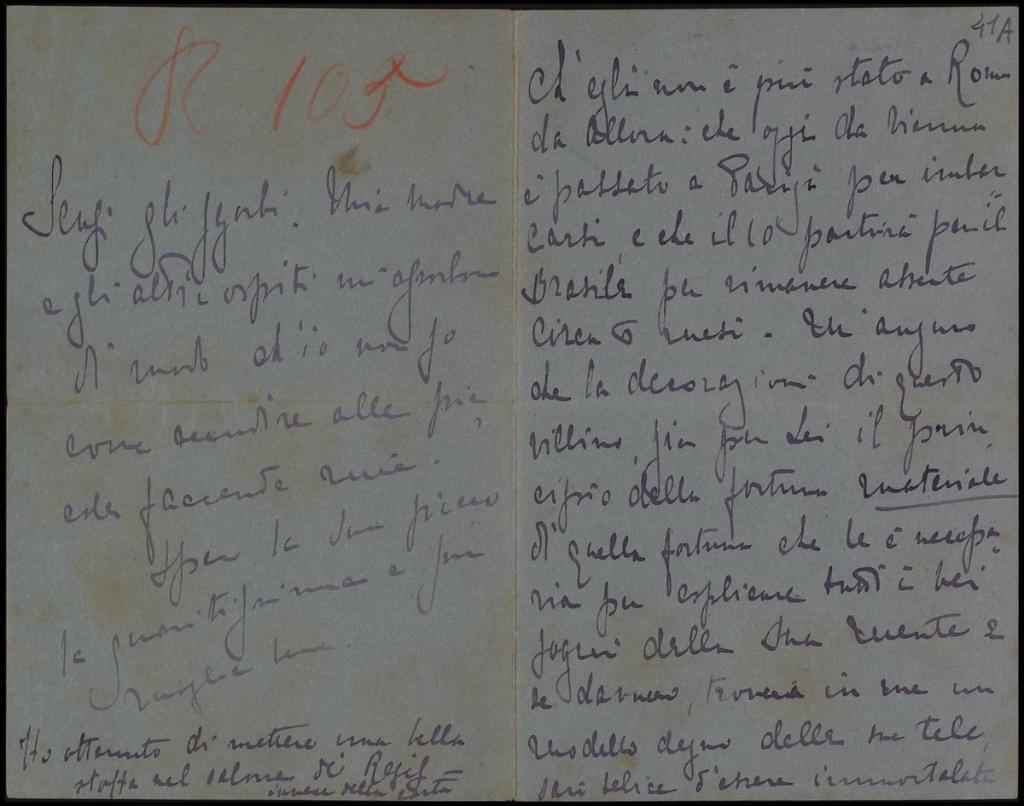 R 105
Scusi gli sgorbi. Mia madre
e gli altri ospiti mi assorbono
di modo ch'io non so
come accudire alle pic
cole faccende mie.
Spero la Sua picco
la guaritissima e Sua
moglie bene.
Ho ottenuto di mettere una bella
stoffa nel salone di
invece della carta =
41A
Ch'egli non è più stato a Roma
da allora: che oggi da Vienna
è passato a Parigi per imbar
carsi, e che il 10 partirà per il
Brasile per rimanere assente
circa 6 mesi. M'auguro
che la decorazione di questo
villino, sia per Lei il prin
cipio della fortuna materiale
di quella fortuna che le è necessa
ria per esplicare tutti i bei
sogni della Sua mente e
se davvero, troverà in me un
modello degno delle sue tele,
sarò felice d'essere immortalata